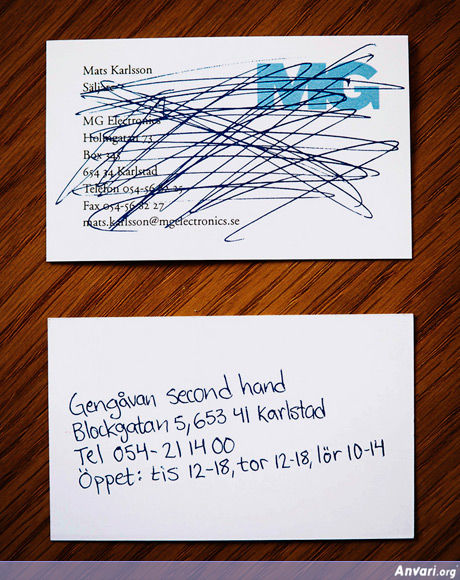 Mats Karlsson
Säljare
MG
MG Electronics
Holmgatan 73
Box 345
654 34 Karlstad
Telefon 054-56 82 25
Fax 054-56 82 27
mats.karlsson@mgelectronics.se
Gengåvan second hand
Blockgatan 5, 653 41 Karlstad
Tel 054-21 14 00
Öppet: tis 12-18, tor 12-18, lör 10-14
Anvari.org